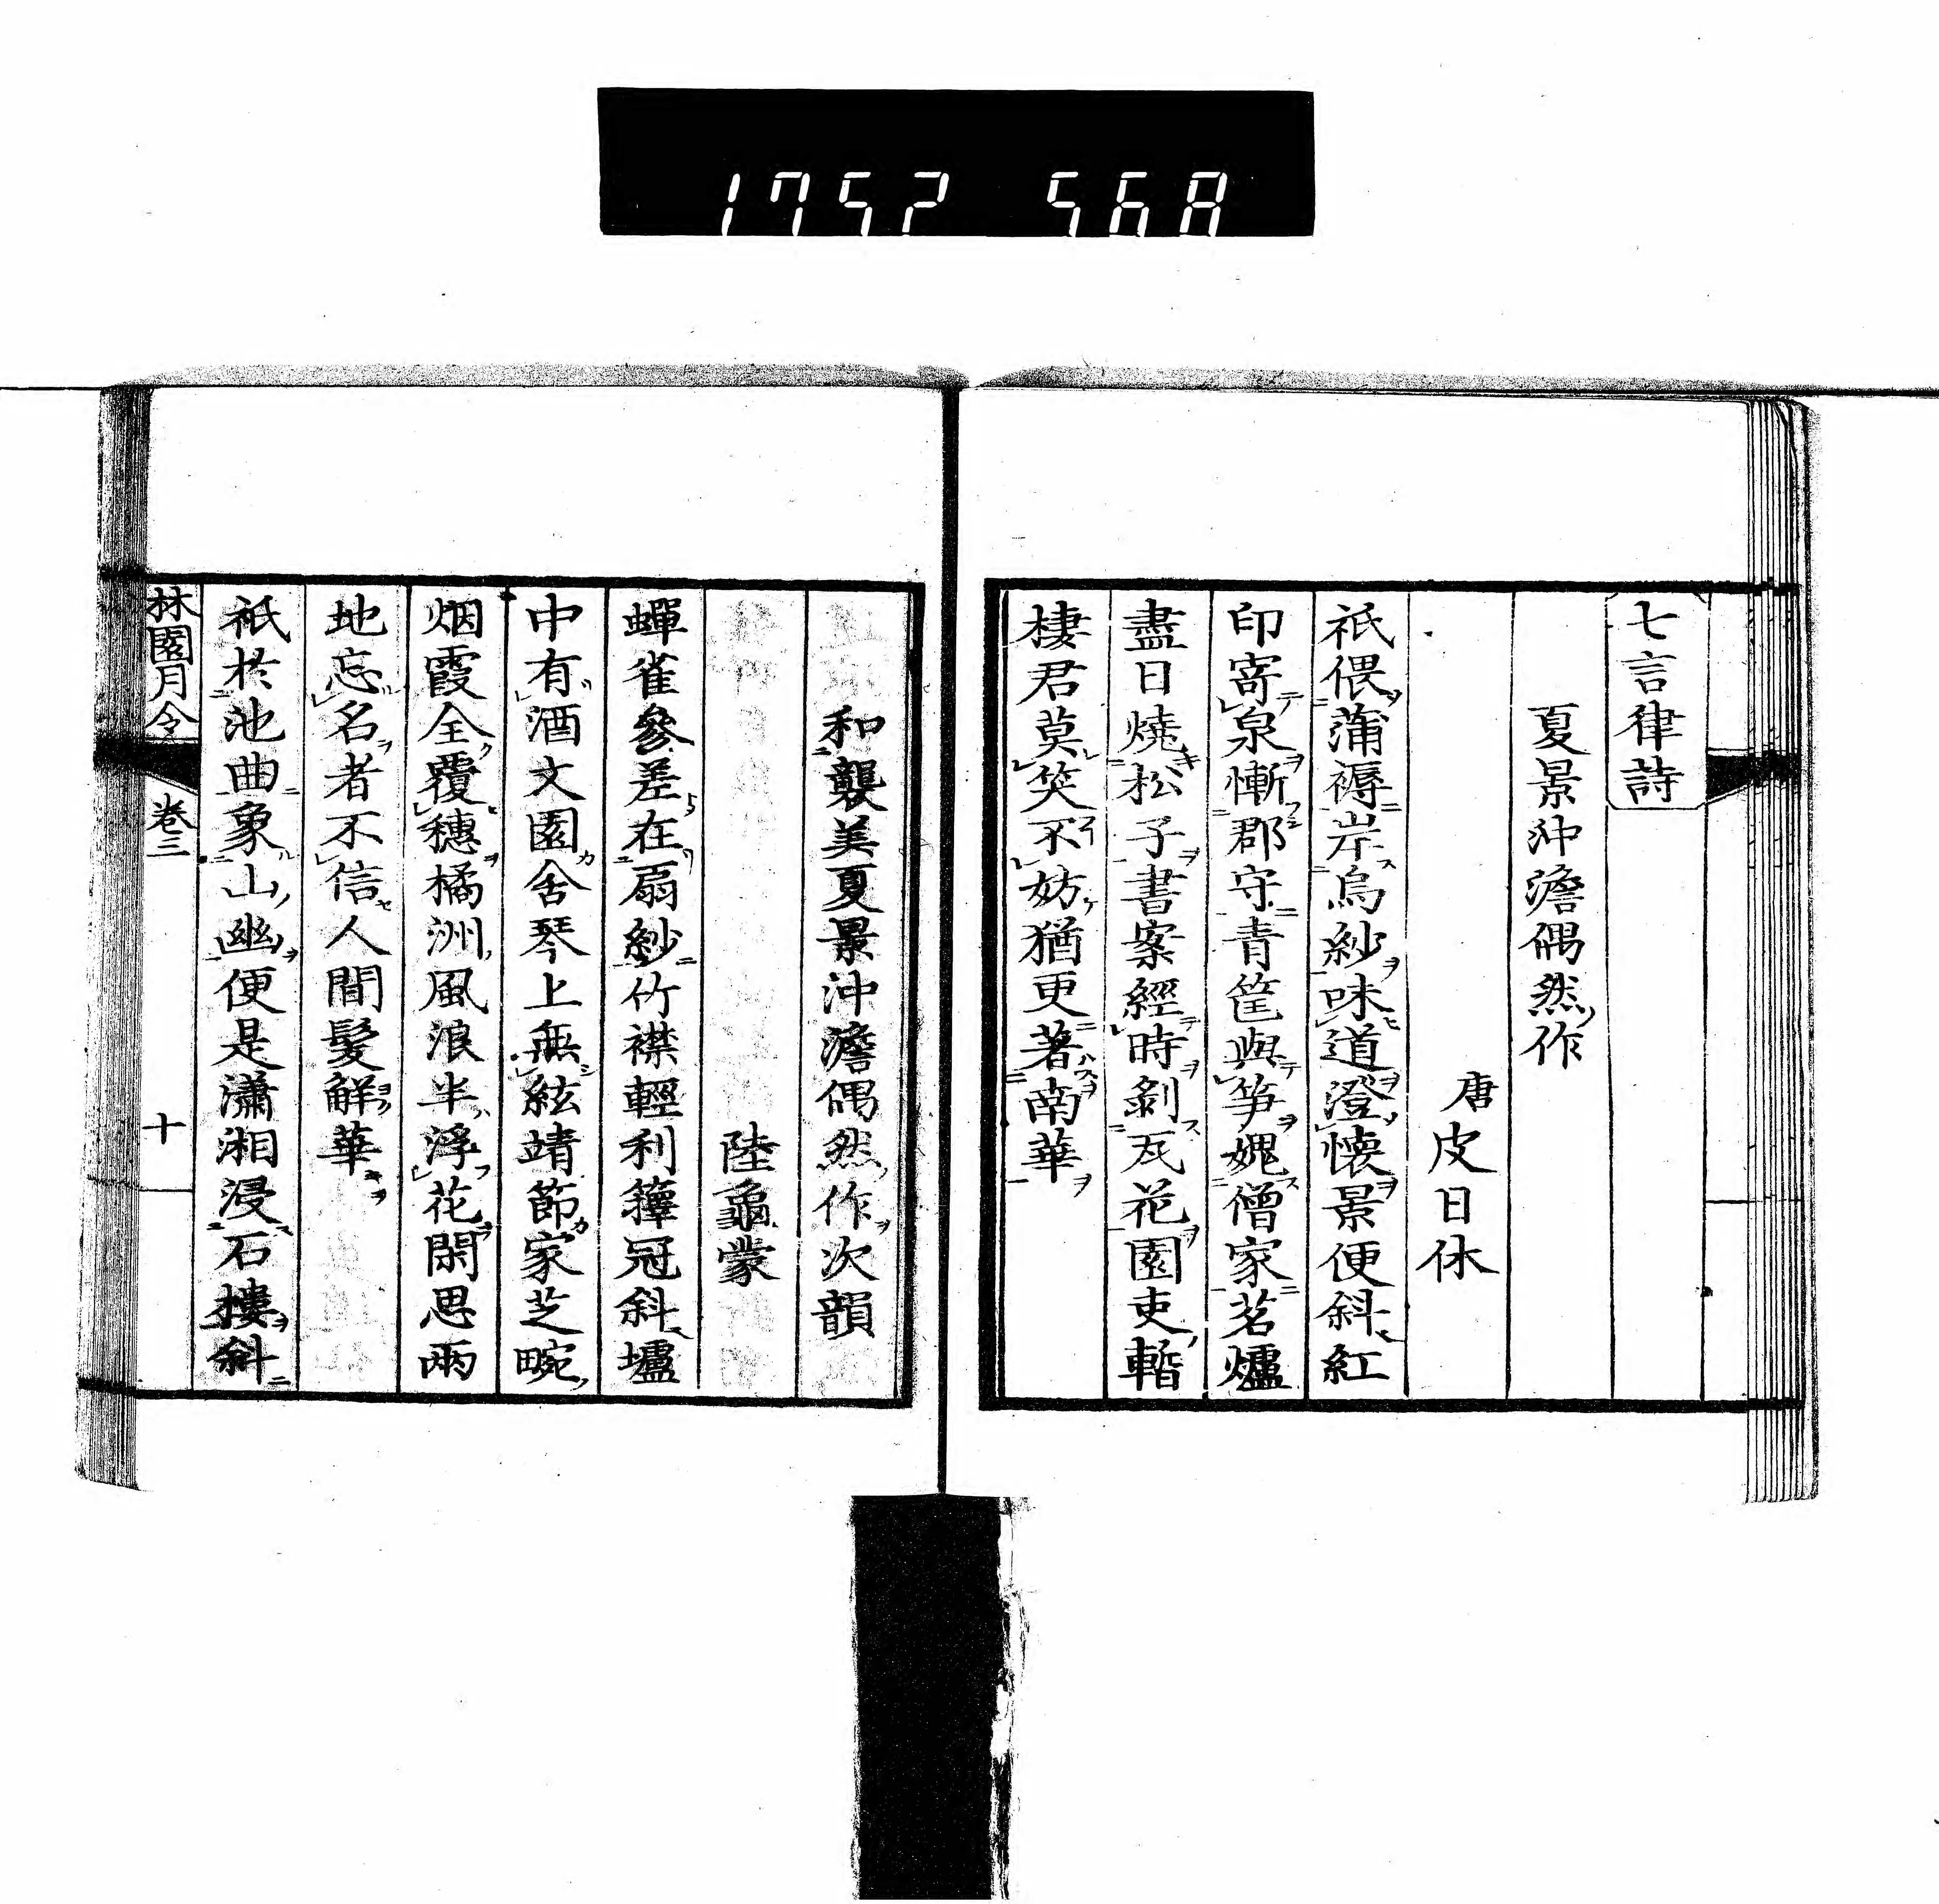 1752 568
七言律詩
夏景沖澹偶然作
唐皮日休
祇偎蒲褥岸烏紗味道澄懷景便斜紅
印寄泉慚郡守青筐與笋媿僧家茗爐
盡日燒松子書案經時剝瓦花園吏暫
棲君莫笑不妨猶更著南華
和襲美夏景沖澹偶然作次韻
陸龜蒙
蟬雀參差在扇紗竹襟輕利籜冠斜壚
中有酒文園舍琴上無絃靖節家芝畹
烟霞全覆穗橘洲風浪半浮花閑思兩
地忘名者不信人間髮解華
祇於池曲象山幽便是瀟湘浸石摟斜
林園月令
卷三
十